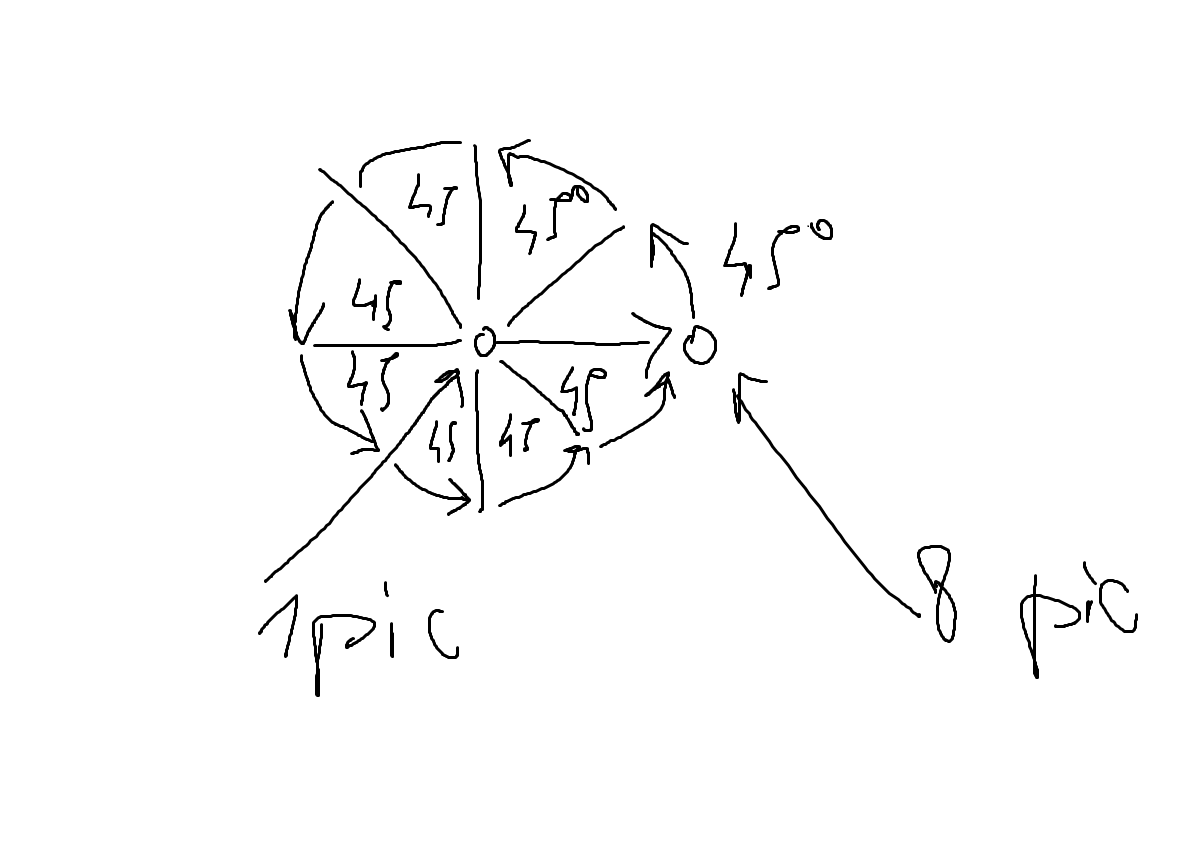 45
45°
45°
45
45
45
45
45
1 pic
8 pic